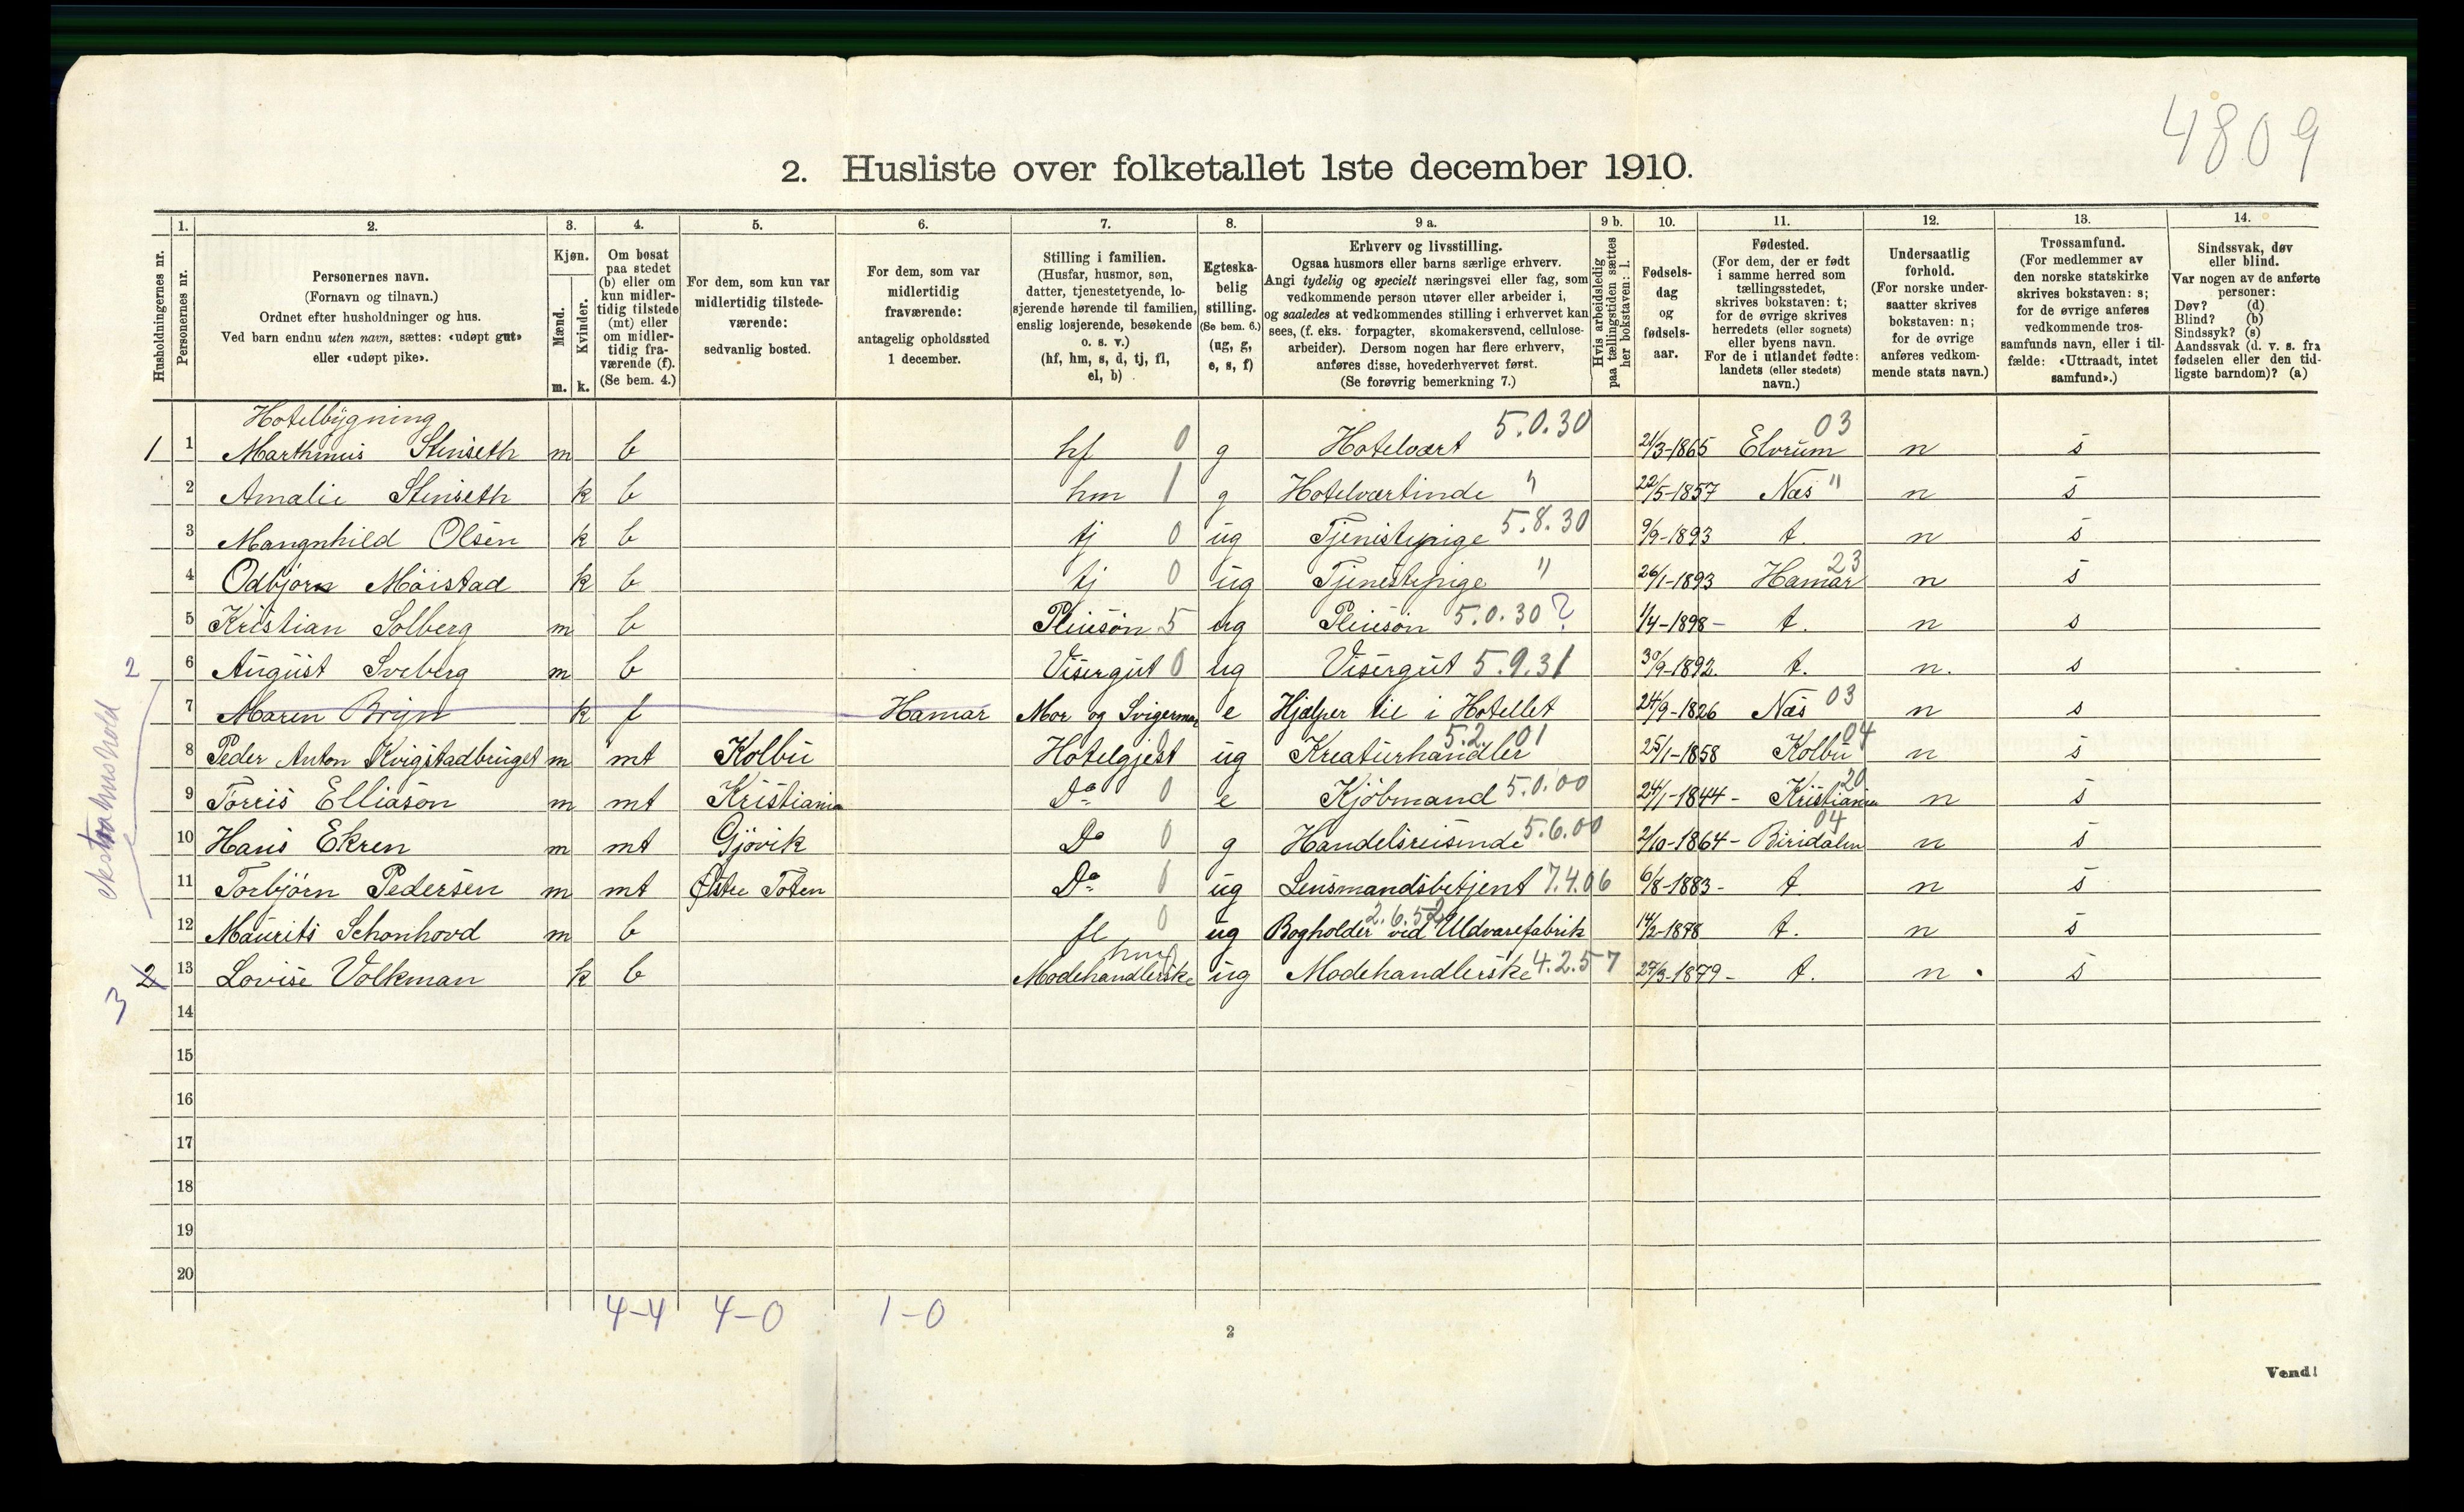 4809
2. Husliste over folketallet 1ste december 1910.
1. 2. 3. 4. 5. 6. 7. 8. 9 a. 9 b. 10. 11. 12. 13. 14.
Husholdningernes nr.
Personernes nr.
Personernes navn.
(Fornavn og tilnavn.)
Ordnet efter husholdninger og hus.
Ved barn endnu uten navn, sættes: «udøpt gut»
eller «udøpt pike».
Kjøn.
Mænd.
Kvinder.
m. k.
Om bosat
paa stedet
(b) eller om
kun midler-
tidig tilstede
(mt) eller
om midler-
tidig fra-
værende (f).
(Se bem. 4.)
For dem, som kun var
midlertidig tilstede-
værende:
sedvanlig bosted.
For dem, som var
midlertidig
fraværende:
antagelig opholdssted
1 december.
Stilling i familien.
(Husfar, husmor, søn,
datter, tjenestetyende, lo-
sjerende hørende til familien,
enslig losjerende, besøkende
o. s. v.)
(hf, hm, s, d, tj, fl,
el, b)
Egteska-
belig
stilling.
(Se bem. 6.)
(ug, g,
e, s, f)
Erhverv og livsstilling.
Ogsaa husmors eller barns særlige erhverv.
Angi tydelig og specielt næringsvei eller fag, som
vedkommende person utøver eller arbeider i,
og saaledes at vedkommendes stilling i erhvervet kan
sees, (f. eks. forpagter, skomakersvend, cellulose-
arbeider). Dersom nogen har flere erhverv,
anføres disse, hovederhvervet først.
(Se forøvrig bemerkning 7.)
Hvis arbeidsledig
paa tællingstiden sættes
her bokstaven: l.
Fødsels-
dag
og
fødsels-
aar.
Fødested.
(For dem, der er født
i samme herred som
tællingsstedet,
skrives bokstaven: t;
for de øvrige skrives
herredets (eller sognets)
eller byens navn.
For de i utlandet fødte:
landets (eller stedets)
navn.)
Undersaatlig
forhold.
(For norske under-
saatter skrives
bokstaven: n;
for de øvrige
anføres vedkom-
mende stats navn.)
Trossamfund.
(For medlemmer av
den norske statskirke
skrives bokstaven: s;
for de øvrige anføres
vedkommende tros-
samfunds navn, eller i til-
fælde: «Uttraadt, intet
samfund».)
Sindssvak, døv
eller blind.
Var nogen av de anførte
personer:
Døv? (d)
Blind? (b)
Sindssyk? (s)
Aandssvak (d. v. s. fra
fødselen eller den tid-
ligste barndom)? (a)
Hotelbygning
1 1 Marthinus Stenseth m b hf 0 g Hotelvært 5.0.30 21/3-1865 Elvrum 03 n s
2 Amalie Stenseth k b hm 1 g Hotelværtinde " 22/5-1857 Næs " n s
3 Mangnhild Olsen k b tj 0 ug Tjenistepige 5.8.30 9/9-1893 t. n s
4 Odbjørn Möistad k b tj 0 ug Tjenestepige " 26/1-1893 Hamar 23 n s
5 Kristian Solberg m b Pleiesøn 5 ug Pleiesøn 5.0.30 ? 1/4-1898- t. n s
2 6 August Sveberg m b Visergut 0 ug Visergut 5.9.31 30/9-1892. t. n. s
7 Maren Bryn k f Hamar Mor og Svigermor e Hjælper til i Hotellet 24/9-1826 Næs 03 n s
8 Peder Anton Kvigstadbruget m mt Kolbu Hotelgjest ug Kreaturhandler 5.2.01 25/1-1858 Kolbu 04 n s
9 Torris Elliason m mt Kristiania Do 0 e Kjöbmand 5.0.00 24/1-1844- Kristiania 20 n s
10 Hans Ekren m mt Gjøvik Do 0 g Handelsreisende 5.6.00 2/10-1864- Biridalen 04 n s
11 Torbjörn Pedersen m mt Østre Toten Do 0 ug Lensmandsbetjent 7.4.06 6/8-1883- t n s
12 Maurits Schonhovd m b fl 0 ug Bogholder ved Uldvarefabrik 2.6.52 14/2-1878 t. n s
3 2 13 Lovise Volkman k b Modehandlerske ug Modehandlerske 4.2.57 27/3-1879- t. n. s
14
15
16
17
18
19
20
4-4 4-0 1-0
2
Vend!